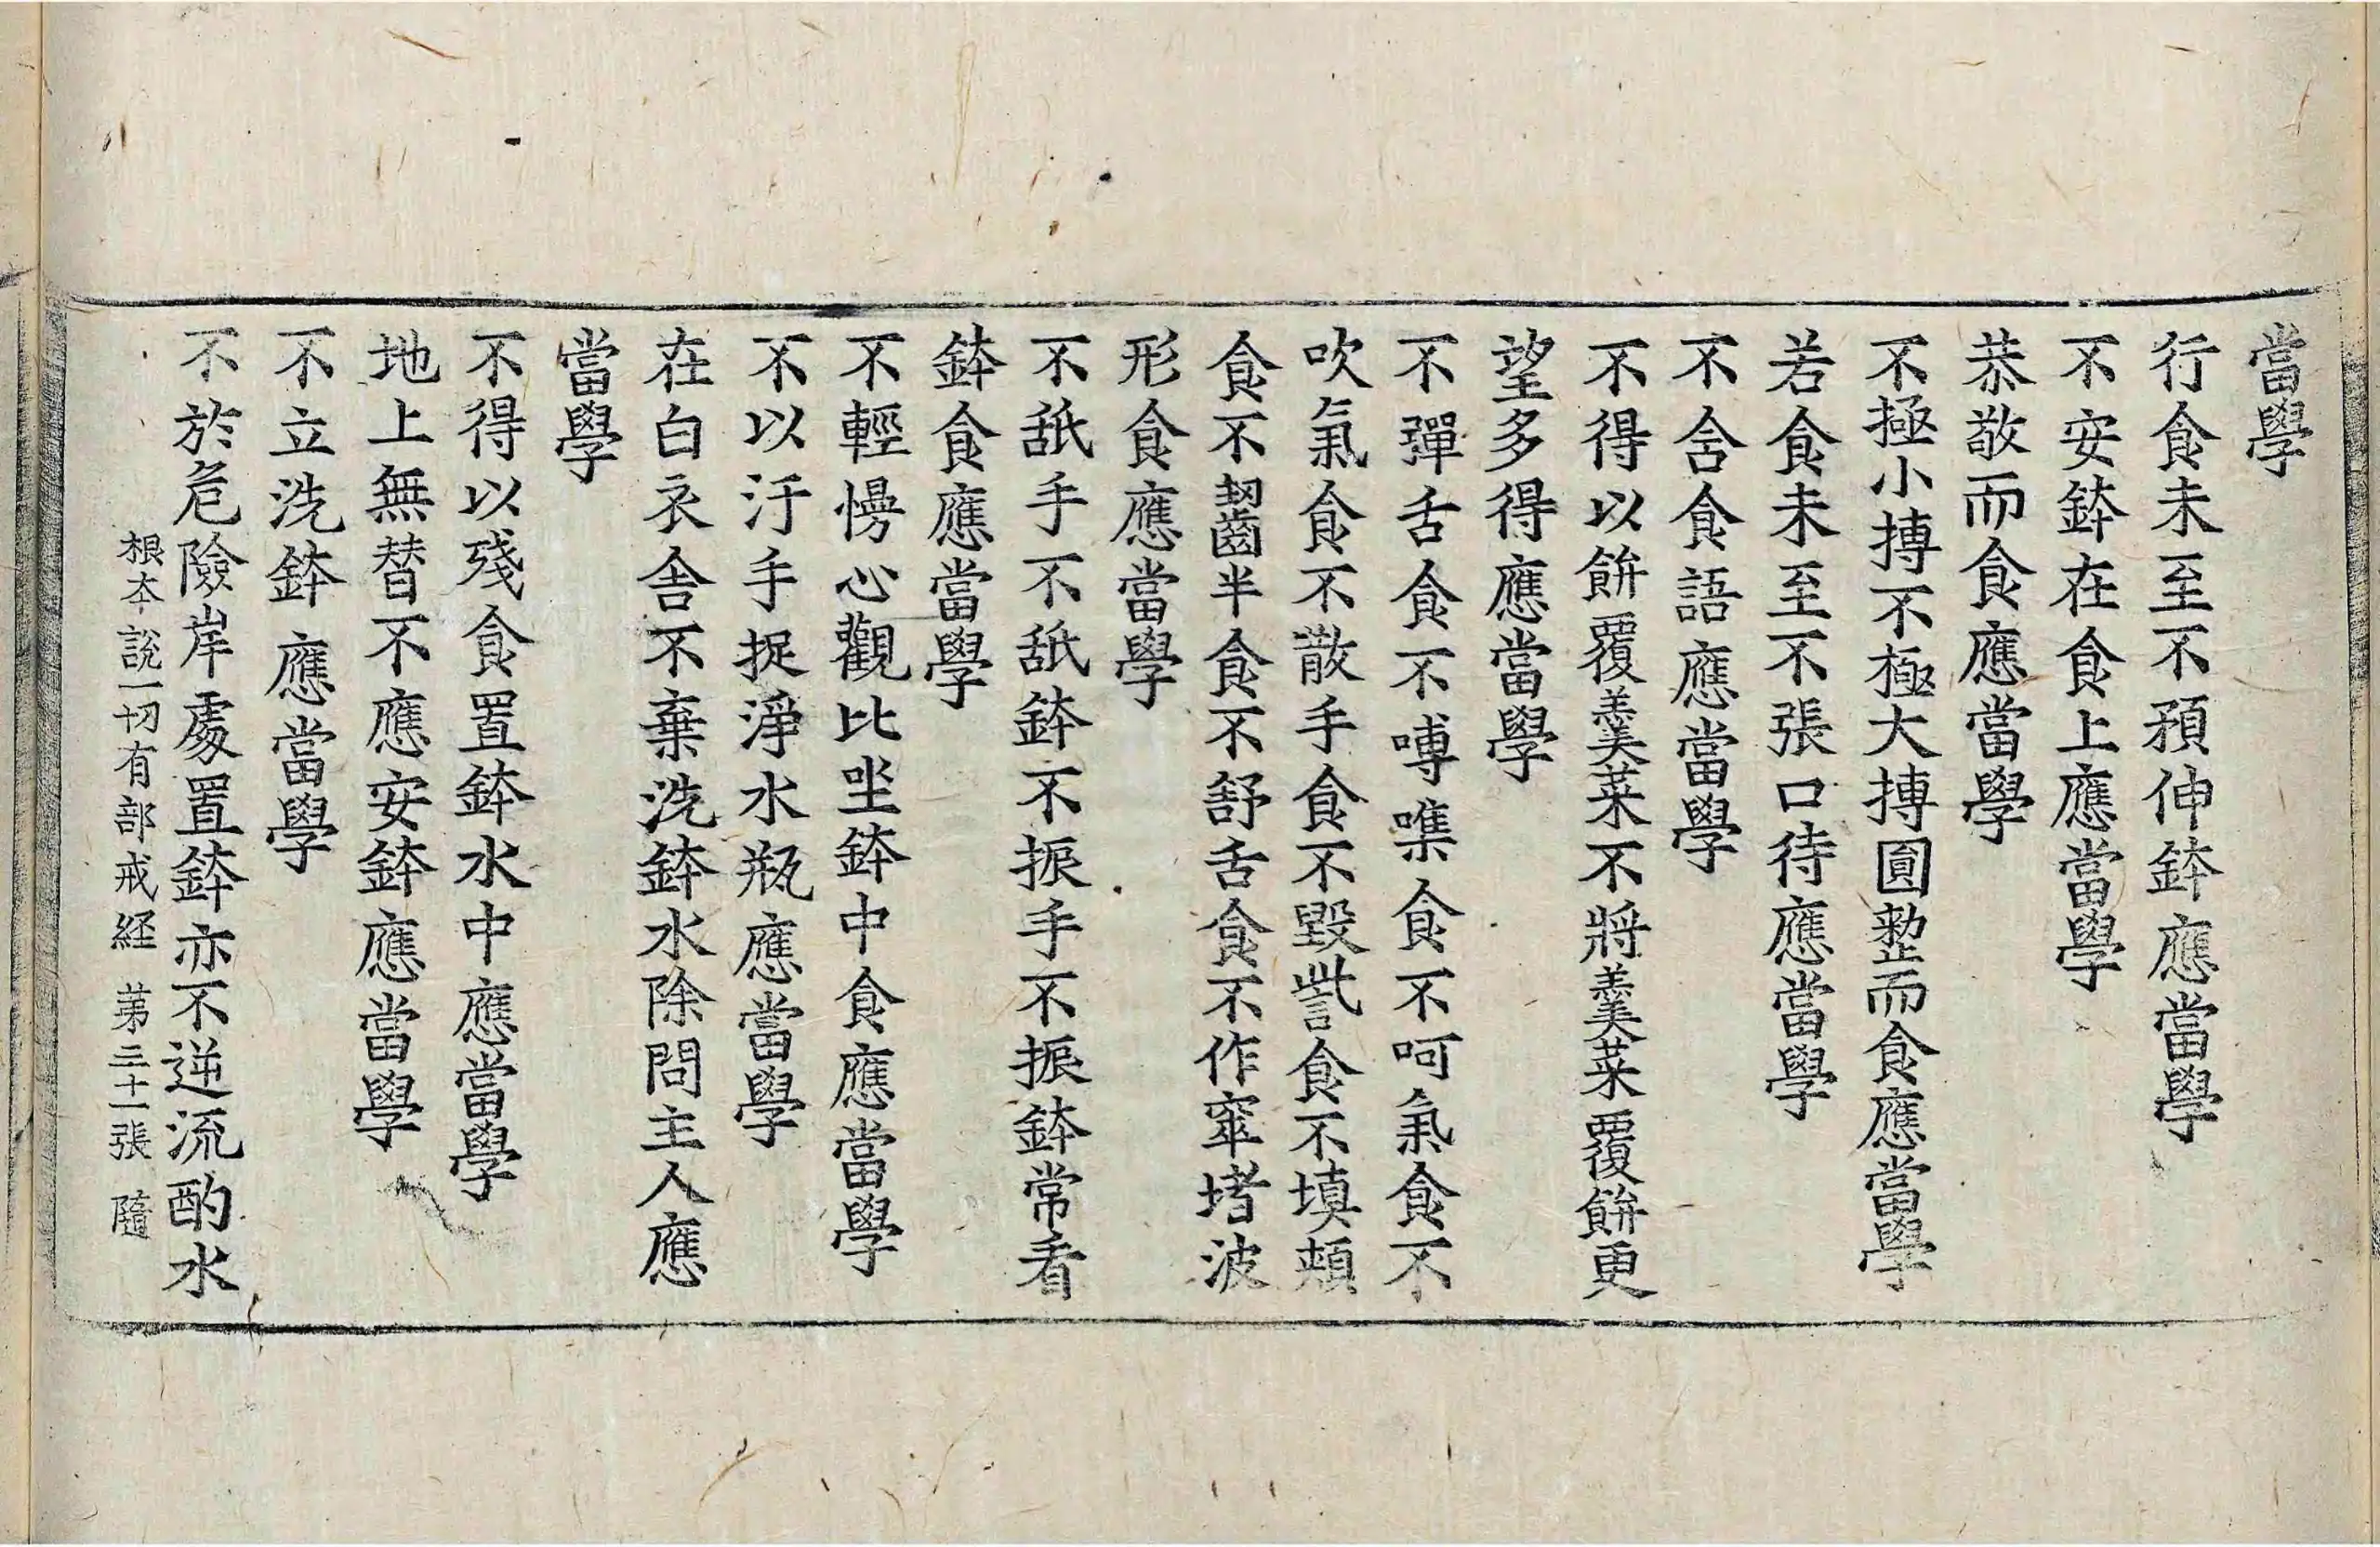 當學
行食未至不預伸鉢應當學
不安鉢在食上應當學
恭敬而食應當學
不極小摶不極大摶圓整而食應當學
若食未至不張口待應當學
不含食語應當學
不得以餅覆羹菜不將羹菜覆餅更
望多得應當學
不彈舌食不嚩㗱食不呵氣食不
吹氣食不散手食不毀訾食不填頰
食不齧半食不舒舌食不作窣堵波
形食應當學
不舐手不舐鉢不振手不振鉢常看
鉢食應當學
不輕慢心觀比坐鉢中食應當學
不以汙手捉淨水瓶應當學
在白衣舍不棄洗鉢水除問主人應
當學
不得以殘食置鉢水中應當學
地上無替不應安鉢應當學
不立洗鉢應當學
不於危險岸處置鉢亦不逆流酌水
根本說一切有部戒経 苐三十一張 隨